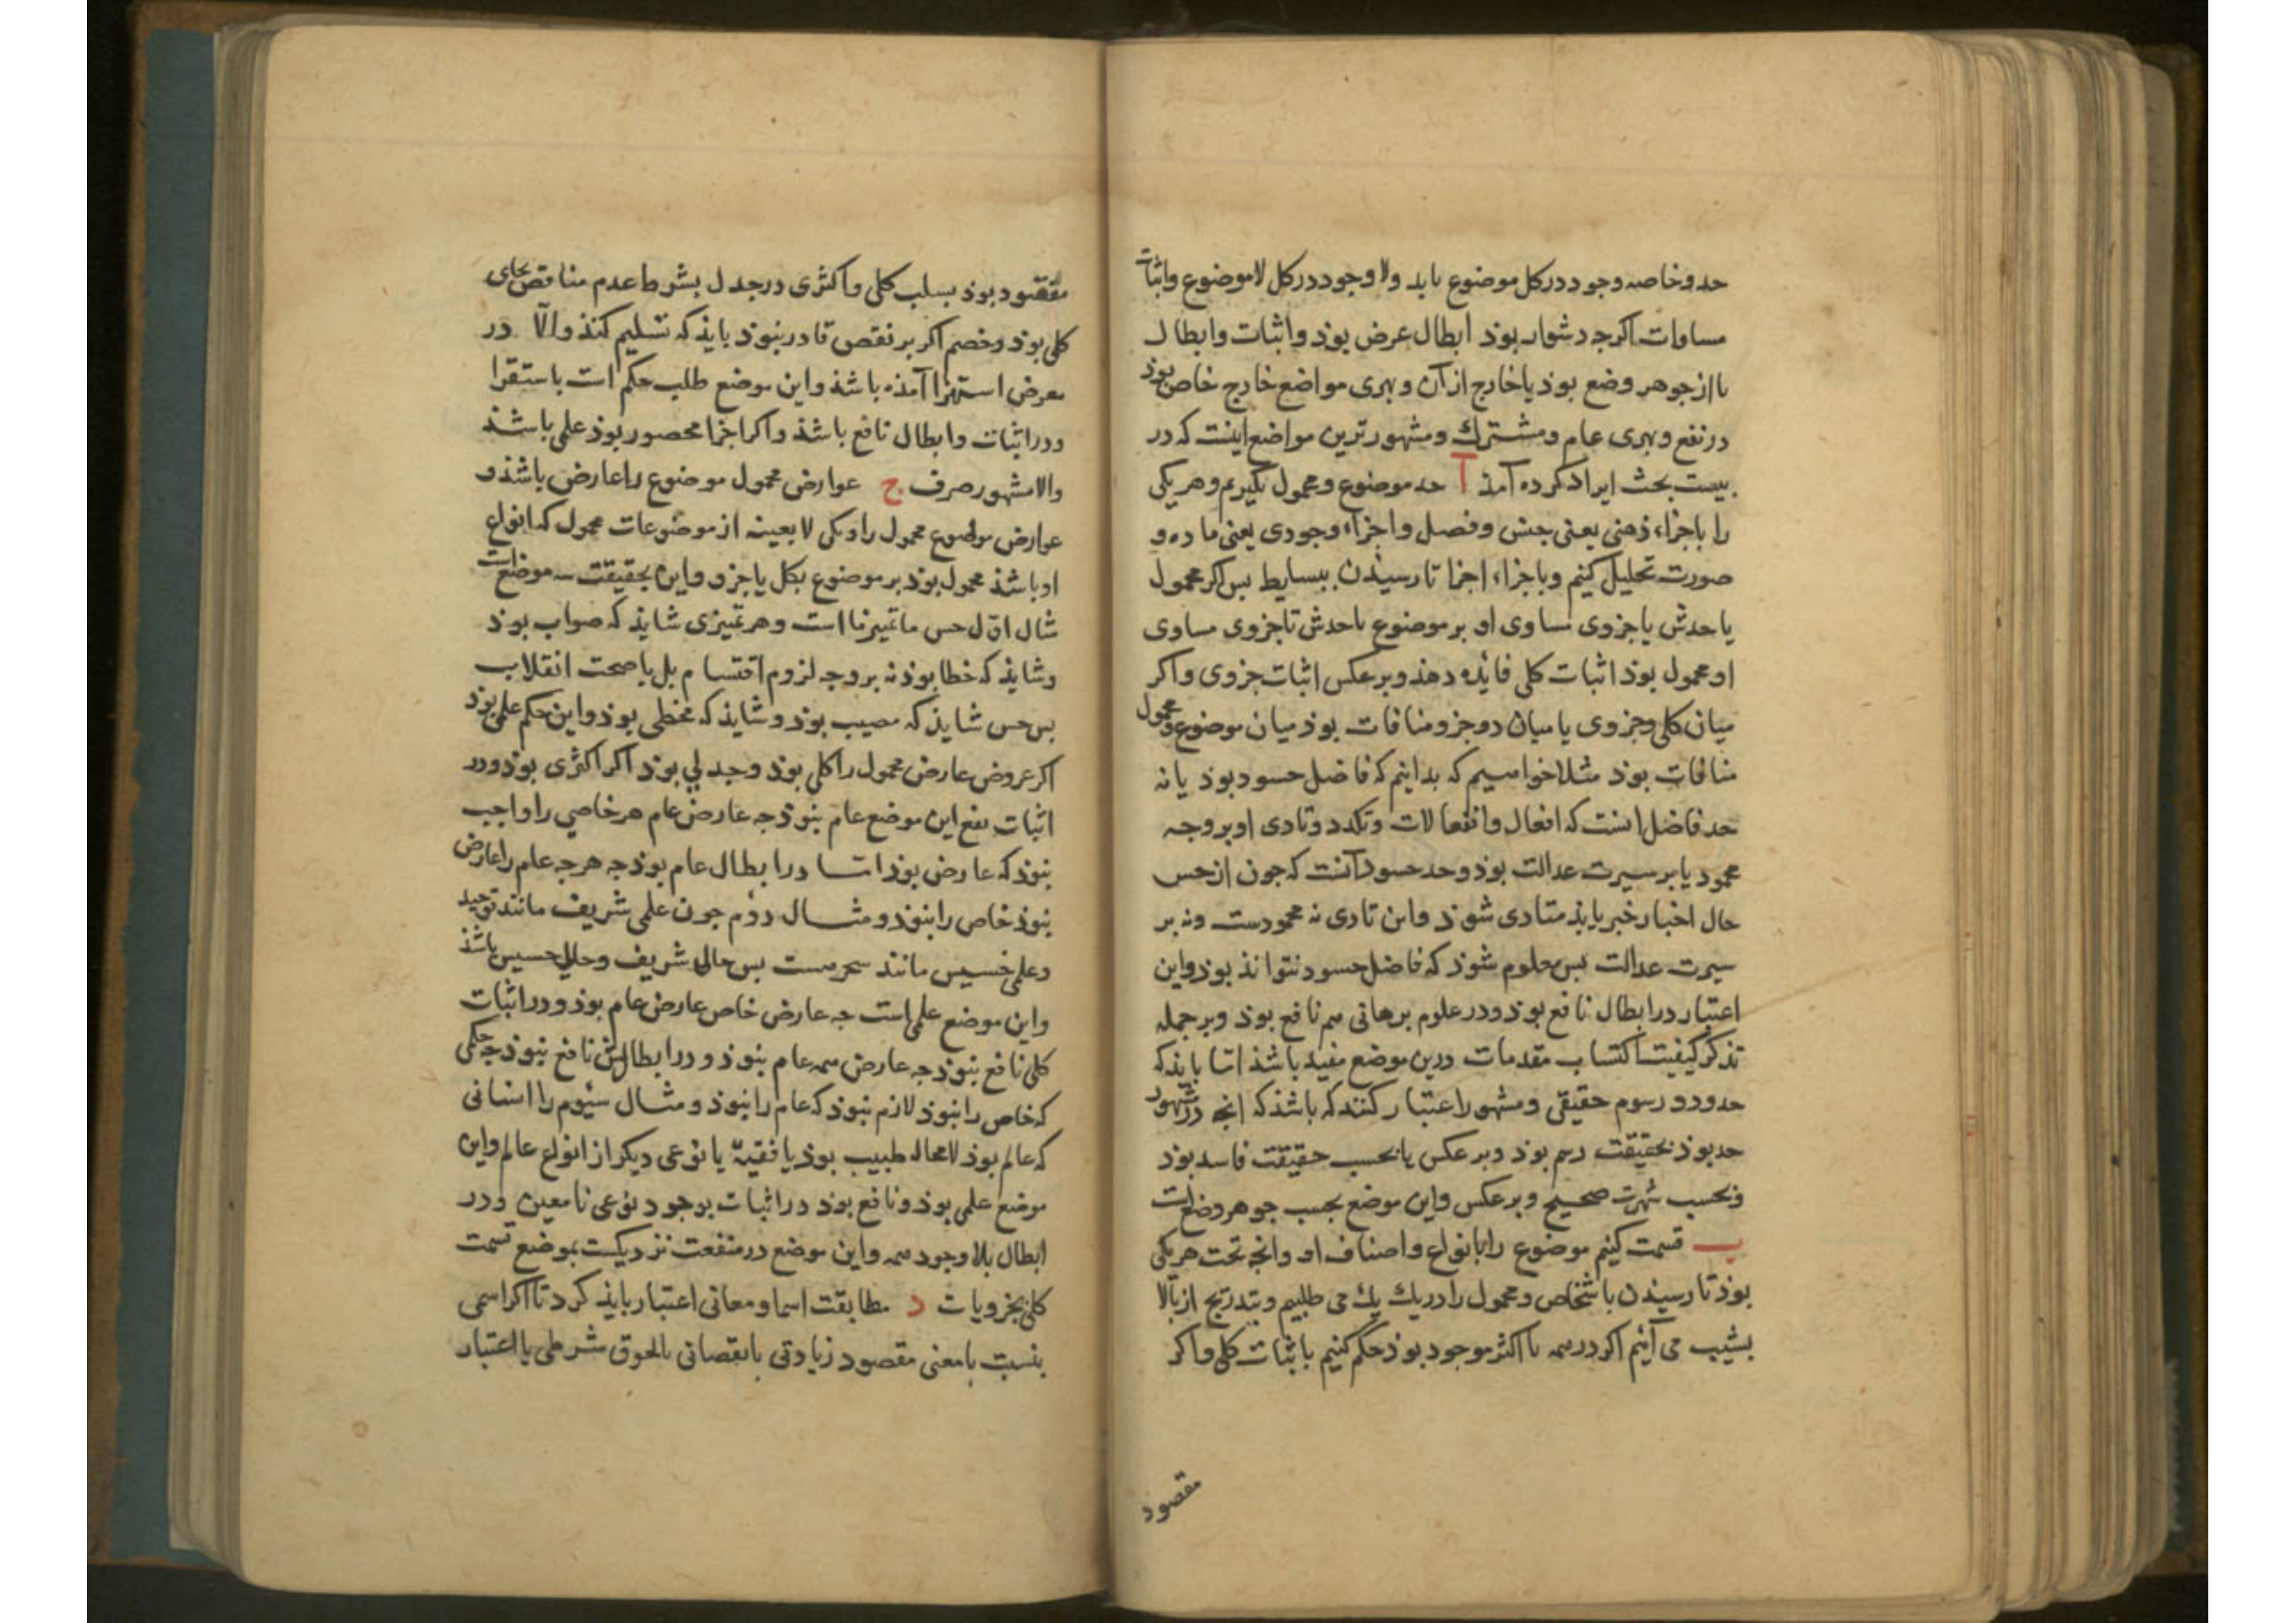 حد و خاصه وجود در کل موضوع باید ولا وجود در کل لا موضوع واثبات
مساوات اکرجه دشوار بوذ ابطال عرض بوذ واثبات وابطال
یا از جوهر وضع بوذ یا خارج از آن وبهری مواضع خارج خاص بوذ
در نفع وبهری عام ومشترك ومشهورترین مواضع اینست که در
بیست بحث ایراد کرده آمذ آ حد موضوع ومحمول بکیریم وهر یکی
را باجزاء ذهنی یعنی جنس وفصل واجزاء وجودی یعنی ماده و
صورت تحلیل کنیم وباجزاء اجزا تا رسیذن ببسایط بس اکر محمول
یا حدش یا جزوی مساوی او بر موضوع یا حدش تا جزوی مساوی
او محمول بوذ اثبات کلی فائده دهذ وبر عکس اثبات جزوی واکر
میان کلی وجزوی یا میان دو جزو منافات بوذ میان موضوع ومحمول
منافات بوذ مثلا خواهیم که بدانیم که فاضل حسود بوذ یا نه
حد فاضل اینست که افعال وانفعالات وتکدد وتادی او بر وجه
محمود یا بر سیرت عدالت بوذ وحد حسود آنست که جون از حسن
حال اخیار خبر یابذ متادی شوذ واین تادی نه محمودست ونه بر
سیرت عدالت بس معلوم شوذ که فاضل حسود نتوانذ بوذ واین
اعتبار در ابطال نافع بوذ ودر علوم برهانی هم نافع بوذ وبر جمله
تذکر کیفیت اکتساب مقدمات درین موضع مفید باشذ اما بایذ که
حدود ورسوم حقیقی ومشهور اعتبار کنند که باشذ که انجه در مشهور
حد بوذ بحقیقت رسم بوذ وبر عکس یا بحسب حقیقت فاسد بوذ
وبحسب شهرت صحیح وبر عکس واین موضع بحسب جوهر وضع است
ب قسمت کنیم موضوع را بانواع واصناف او وانجه تحت هر یکی
بوذ تا رسیذن باشخاص ومحمول را در یك یك می طلبیم وبتدریج از بالا
بشیب می آئیم اکر در همه یا اکثر موجود بوذ حکم کنیم باثبات کلی واکر
مقصود
مفقود بوذ بسلب کلی واکثری در جدل بشرط عدم مناقض جای
کلی بوذ وخصم اکر بر نقض قادر نبوذ بایذ که تسلیم کنذ والّا در
معرض استهزا آمذه باشذ واین موضع طلب حکم است باستقرا
ودر اثبات وابطال نافع باشذ واکر اجزا محصور بوذ علمی باشذ
والا مشهور صرف ج عوارض محمول موضوع را عارض باشذ و
عوارض موضوع محمول را ویکی لا بعینه از موضوعات محمول که انواع
او باشذ محمول بوذ بر موضوع بکل یا جزو واین بحقیقت سه موضع است
مثال اوّل حس ما تمیز ما است وهر تمیزی شایذ که صواب بوذ
وشایذ که خطا بوذ نه بر وجه لزوم اقتسام بل با صحت انقلاب
بس حس شایذ که مصیب بوذ وشایذ که مخطی بوذ واین حکم علمی بوذ
اکر عروض عارض محمول را کلی بوذ وجدلی بوذ اکر اکثری بوذ ودر
اثبات نفع این موضع عام نبوذ جه عارض عام هر خاصی را واجب
نبوذ که عارض بوذ اما در ابطال عام بوذ جه هر جه عام را عارض
نبوذ خاص را نبوذ ومثال دوّم جون علمی شریف مانند توحید
وعلمی خسیس مانند سحر هست بس حالی شریف وحالی خسیس باشذ
واین موضع علمی است جه عارض خاص عارض عام بوذ ودر اثبات
کلی نافع نبوذ جه عارض همه عام نبوذ ودر ابطالش نافع نبوذ جه حکمی
که خاص را نبوذ لازم نبوذ که عام را نبوذ ومثال سیّوم را انسانی
که عالم بوذ لا محاله طبیب بوذ یا فقیه یا نوعی دیکر از انواع عالم واین
موضع علمی بوذ ونافع بوذ در اثبات بوجود نوعی نا معین ودر
ابطال بلا وجود همه واین موضع در منفعت نزدیکست بموضع قسمت
کلی بجزویات د مطابقت اسما ومعانی اعتبار بایذ کرد تا اکر اسمی
بنسبت با معنی مقصود زیادتی یا نقصانی یا لحوق شرطی یا اعتبار